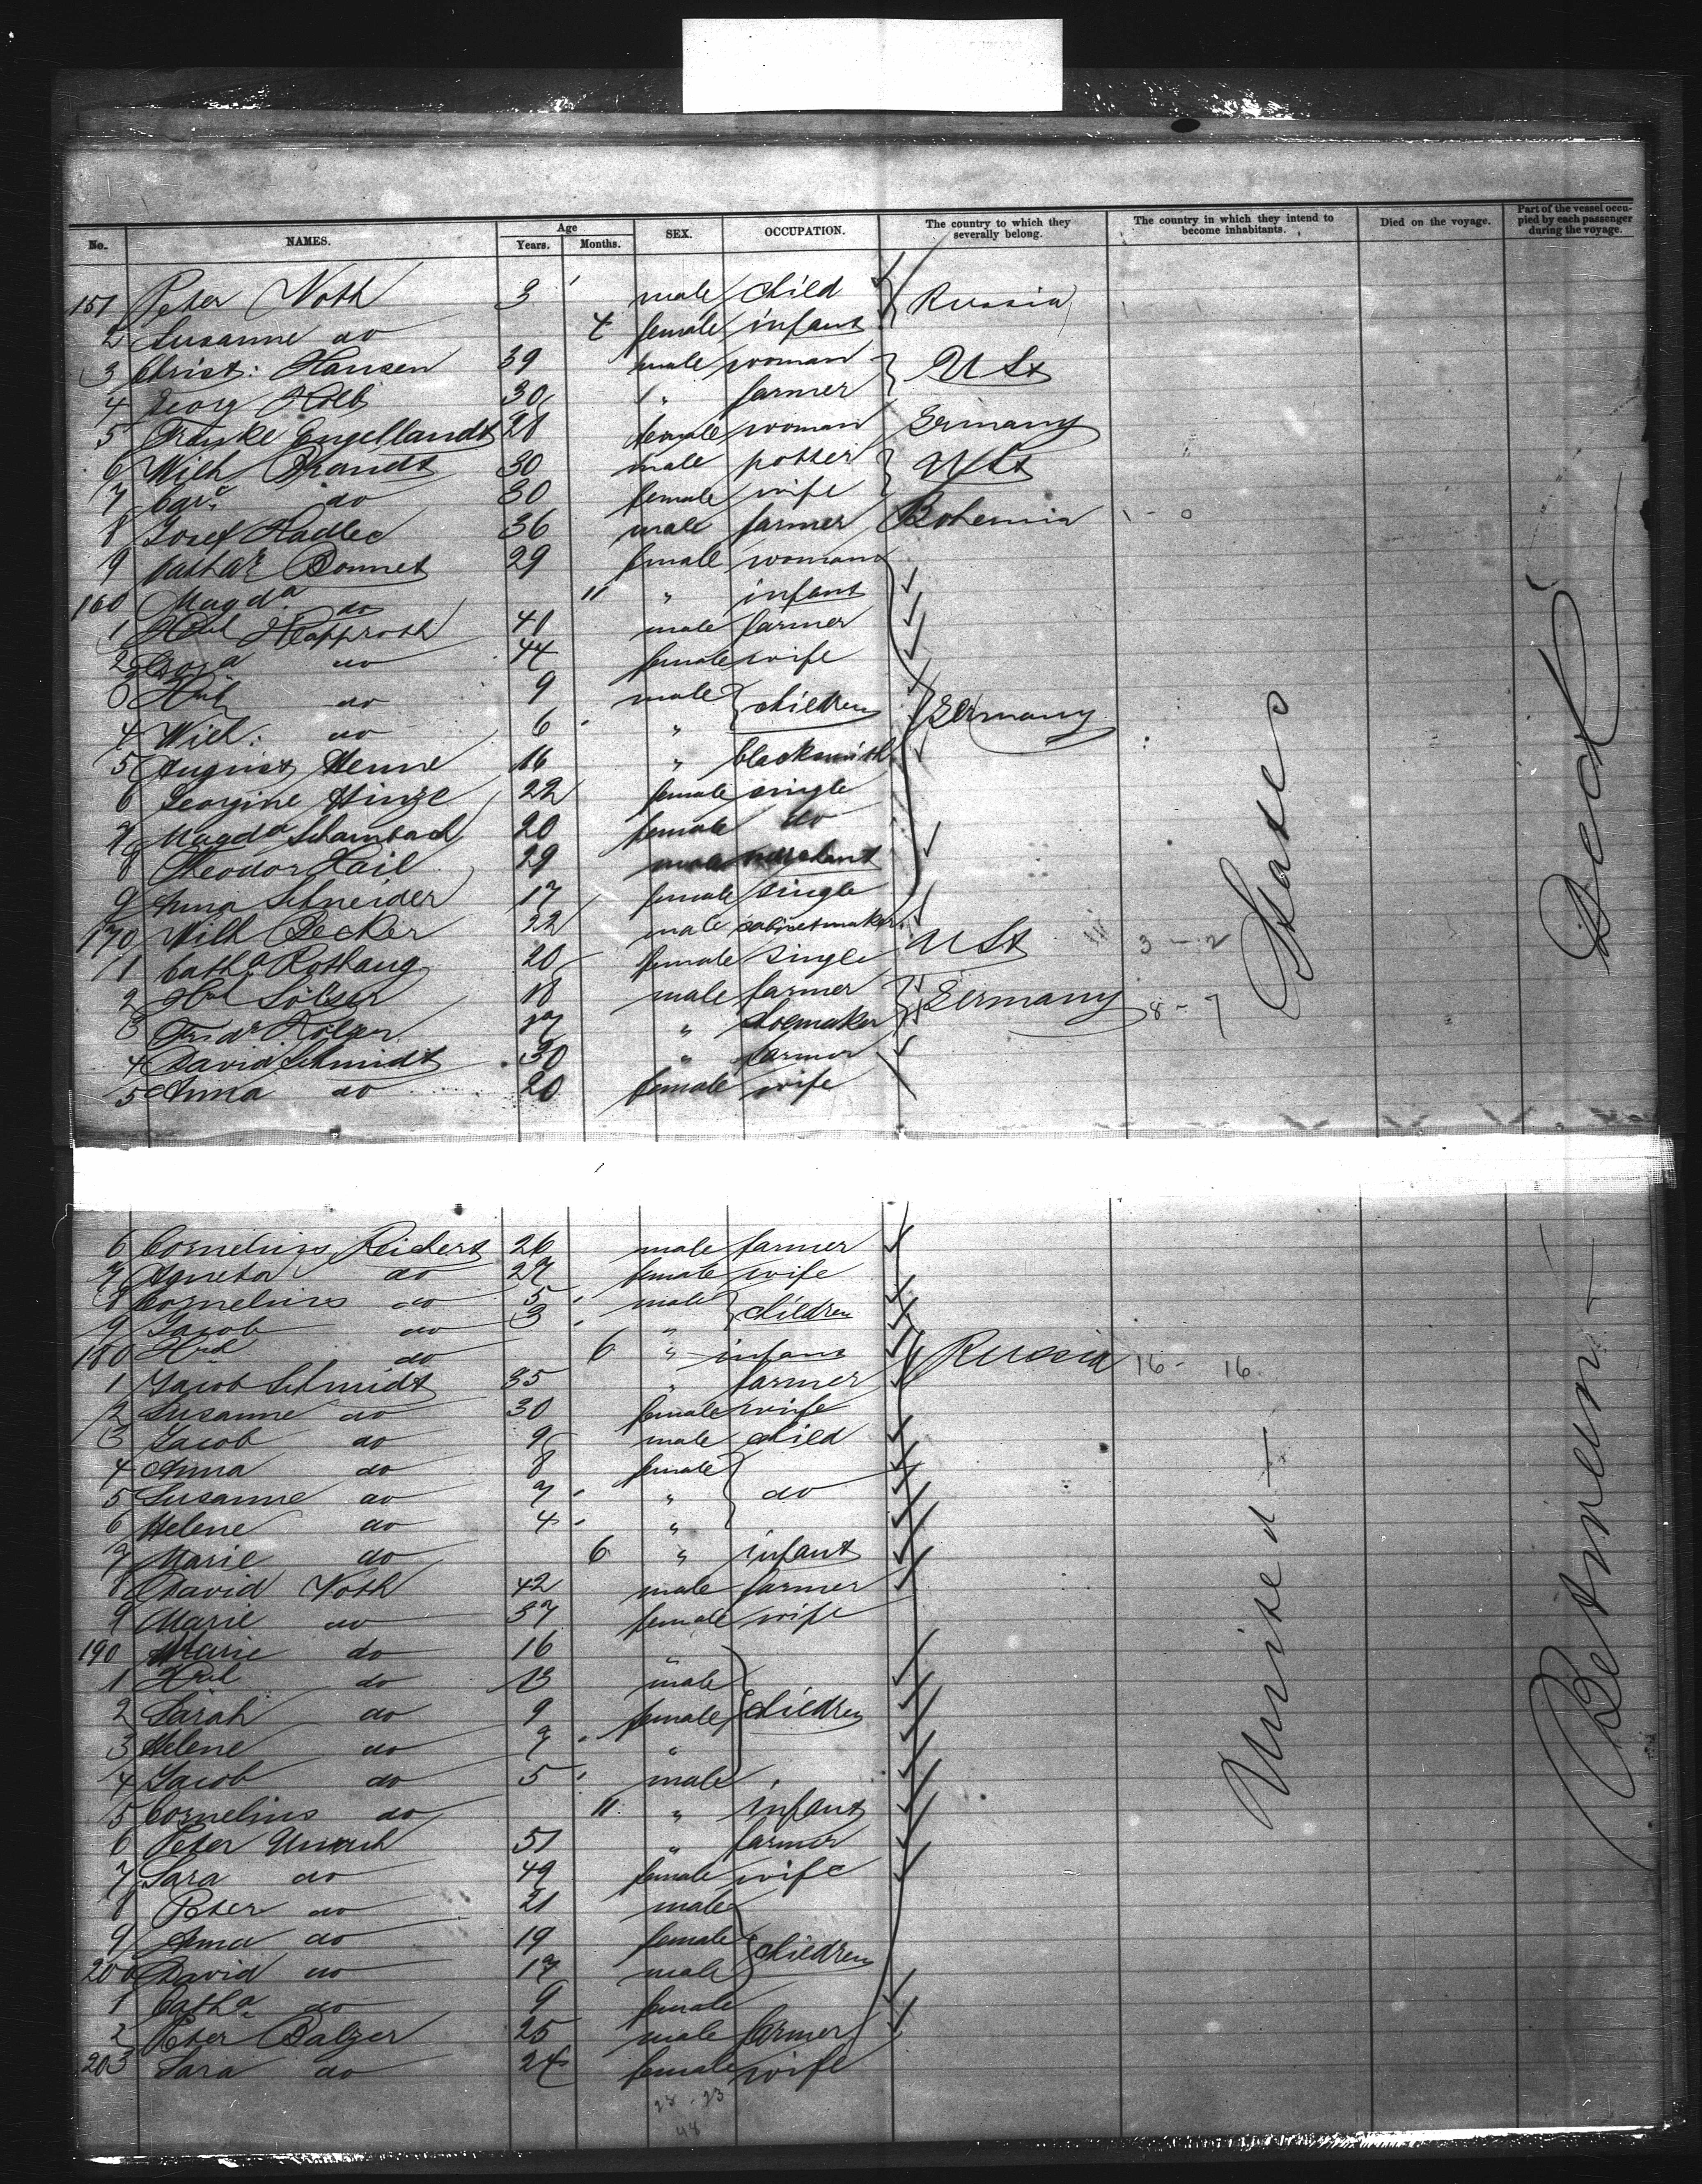 No. NAMES. Age Years. Months. SEX. OCCUPATION. The country to which they severally belong. The country in which they intend to become inhabitants. Died on the voyage. Part of the vessel occupied by each passenger during the voyage.
151 Peter Voth 3 male child Russia
2 Susanne do 4 female infant
3 Christ: Hansen 39 male woman U St
4 Georg Kolb 30 " farmer
5 Frauke Engellandt 28 female woman Germany
6 Wilh Brandt 30 male potter U St
7 Car. do 30 female wife
8 Josef Kadlec 36 male farmer Bohemia 1 - 0
9 Cathar Bonnet 29 female woman
160 Magda. do 11 " infant
1 Klapproth 41 male farmer
2 do 44 female wife
3 do 9 male children Germany
4 Wilh. do 6 "
5 August Henne 16 " blacksmith
6 Georgine Hinze 22 female single
7 Magda Schambach 20 female do
8 Theodor Keil 29 male merchant
9 Anna Schneider 17 female single
170 Wilh Becker 22 male cabinetmaker
1 Catha Rothaug 20 female single U St 3 - 2
2 Hch Sölzer 18 male farmer Germany 8 - 7
3 Fridr 17 " shoemaker
4 David Schmidt 30 " farmer
5 Anna do 20 female wife
6 Cornelius Reichert 26 male farmer
7 Agneta do 27 female wife
8 Cornelius do 5 male children
9 Jacob do 3 "
180 Hch do 6 " infant Russia 16 - 16
1 Jacob Schmidt 35 " farmer
2 Susanne do 30 female wife
3 Jacob do 9 male child
4 Anna do 8 female do
5 Susanne do 7 "
6 Helene do 4 "
7 Marie do 6 " infant
8 David Voth 42 male farmer
9 Marie do 37 female wife
190 Marie do 16 "
1 Hch do 13 male
2 Sarah do 9 female children
3 Helene do 7 "
4 Jacob do 5 male
5 Cornelius do 11 " infant
6 Peter Unruh 51 " farmer
7 Sara do 49 female wife
8 Peter do 21 male
9 Anna do 19 female children
200 David do 17 male
1 Catha do 9 female
2 Peter Balzer 25 male farmer
203 Sara do 24 female wife
23
48
United States
Between Deck